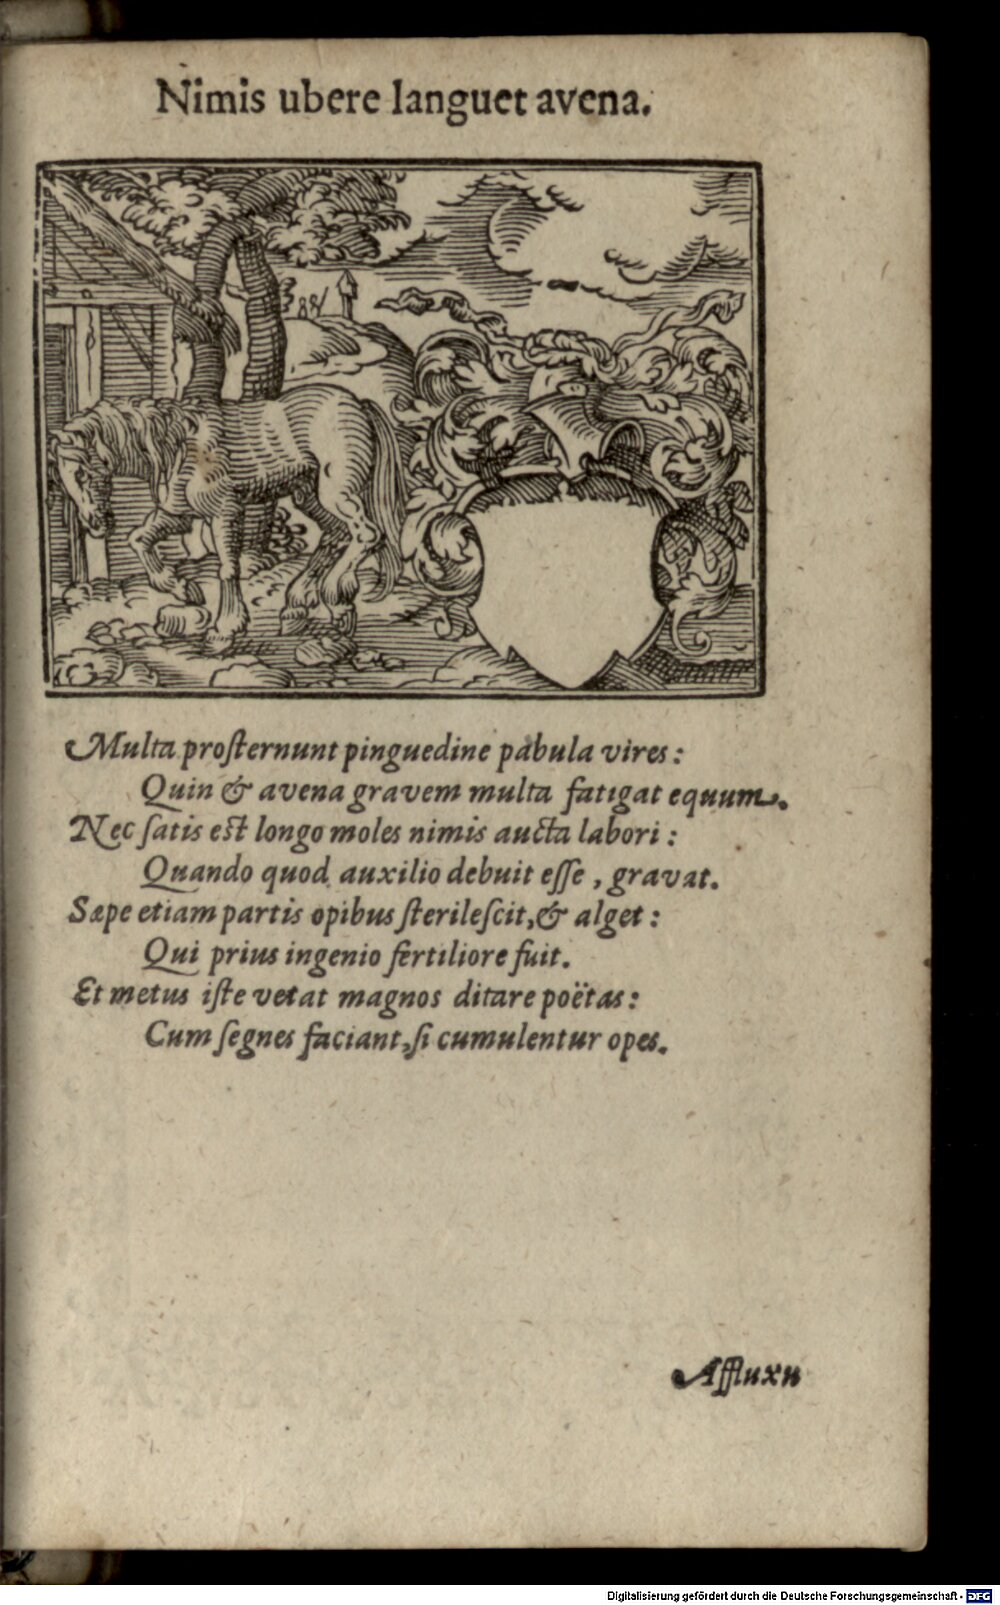 Nimis ubere languet avena.
Multa prosternunt pinguedine pabula vires:
Quin & avena gravem multa fatigat equum.
Nec satis est longo moles nimis aucta labori:
Quando quod auxilio debuit esse, gravat.
Sæpe etiam partis opibus sterilescit, & alget:
Qui prius ingenio fertiliore fuit.
Et metus iste vetat magnos ditare poëtas:
Cum segnes faciant, si cumulentur opes.
Affluxu
Digitalisierung gefördert durch die Deutsche Forschungsgemeinschaft - DFG